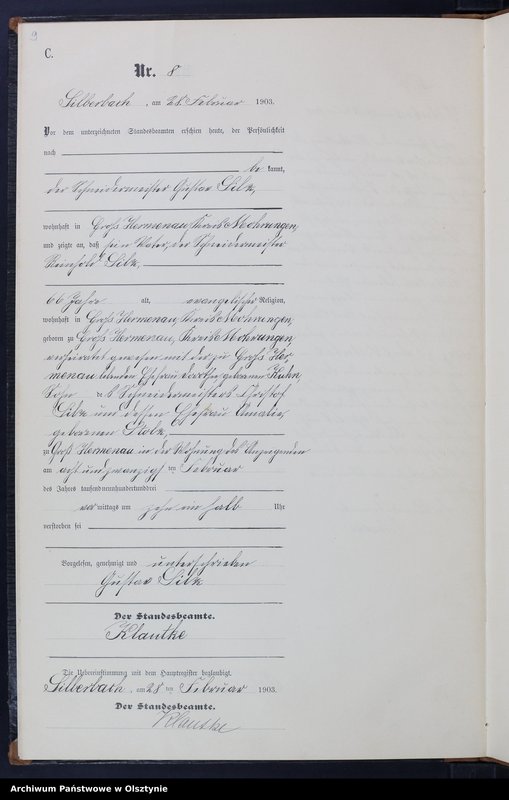 9
C.
Nr. 8
Silberbach, am 28. Februar 1903.
Vor dem unterzeichneten Standesbeamten erschien heute, der Persönlichkeit
nach
be kannt,
der Schneidermeister Gustav
wohnhaft in Groß Hermenau, Kreis Mohrungen,
und zeigte an, daß sein Vater, der Schneidermeister
Reinhold
66 Jahre alt, evangelischer Religion,
wohnhaft in Groß Hermenau, Kreis Mohrungen,
geboren zu Groß Hermenau, Kreis Mohrungen
verheiratet gewesen mit der zu Groß Her-
menau lebenden Ehefrau geborenen Kuhn,
Sohn des Schneidermeisters Christof
und dessen Ehefrau Amalie,
geborenen
zu Groß Hermenau in der Wohnung des Anzeigenden
am acht und zwanzigsten Februar
des Jahres tausendneunhundertunddrei
vor mittags um zehn ein halb Uhr
verstorben sei
Vorgelesen, genehmigt und unterschrieben
Gustav
Der Standesbeamte.
Klautke
Die Uebereinstimmung mit dem Hauptregister beglaubigt.
Silberbach, am 28 ten Februar 1903.
Der Standesbeamte.
Klautke
Archiwum Państwowe w Olsztynie